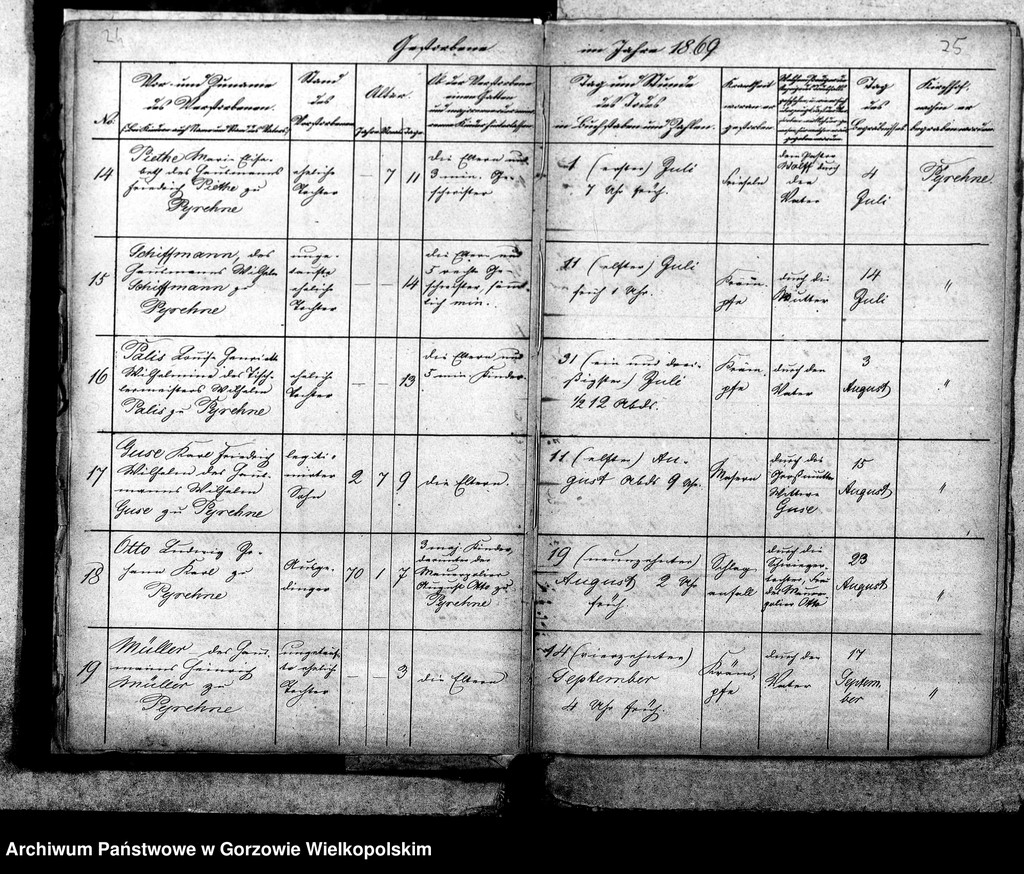 24
25
Gestorbene im Jahre 1869
No.
Vor- und Zuname
des Verstorbenen.
Stand
des
Verstorbenen
Alter.
Jahre Mon. Tage
Ob der Verstorbene
einen Gatten
Tag und Stunde
des Todes
in Buchstaben und Zahlen.
Krankheit
woran er
gestorben
Tag
des
Begräbnisses
Kirchhof
wohin er
begraben worden
14
Piethe Marie Elisa-
beth des Hautmanns
Friedrich Piethe zu
Pyrehne
eheliche
Tochter
— 7 11
die Eltern und
3 min. Ge-
schwister
1 (ersten) Juli
7 Uhr früh.
dem Pastor
Wolff durch
den
Vater
4
Juli
Pyrehne.
15
Schiffmann, des
Wilhelm
Schiffmann zu
Pyrehne
unge-
taufte
eheliche
Tochter
— — 14
die Eltern und
5 rechte Ge-
schwister, sämt-
lich min.
11 (elften) Juli
früh 1 Uhr.
Kräm-
pfe
durch die
Mutter
14
Juli
"
16
Palis Louise Henriette
Wilhelmine des Tisch-
lermeisters Wilhelm
Palis zu Pyrehne
eheliche
Tochter
— — 13
die Eltern und
5 min. Kinder.
31 (ein und drei-
ßigsten) Juli
1/2 12 Abds.
Kräm-
pfe
durch den
Vater
3
August
"
17
Guse Karl Friedrich
Wilhelm des
Wilhelm
Guse zu Pyrehne
legiti-
mirter
Sohn
2 7 9
die Eltern.
11 (elften) Au-
gust Abds 9 Uhr.
Masern
durch die
Großmutter
Wittwe
Guse
15
August
"
18
Otto Ludwig Jo-
hann Karl zu
Pyrehne
Ausge-
dinger
70 1 7
3 maj. Kinder,
darunter der
Maurerpolier
August Otto zu
Pyrehne
19 (neunzehnten)
August 2 Uhr
früh.
Schlag-
anfall
durch die
Schwieger-
tochter, Frau
des Maurer-
polier Otto
23
August
"
19
Müller, des
Heinrich
Müller zu
Pyrehne
ungetauf-
te eheliche
Tochter
— — 3
die Eltern
14 (vierzehnten)
September
4 Uhr früh.
Kräm-
pfe
durch den
Vater
17
Septem-
ber
"
Archiwum Państwowe w Gorzowie Wielkopolskim